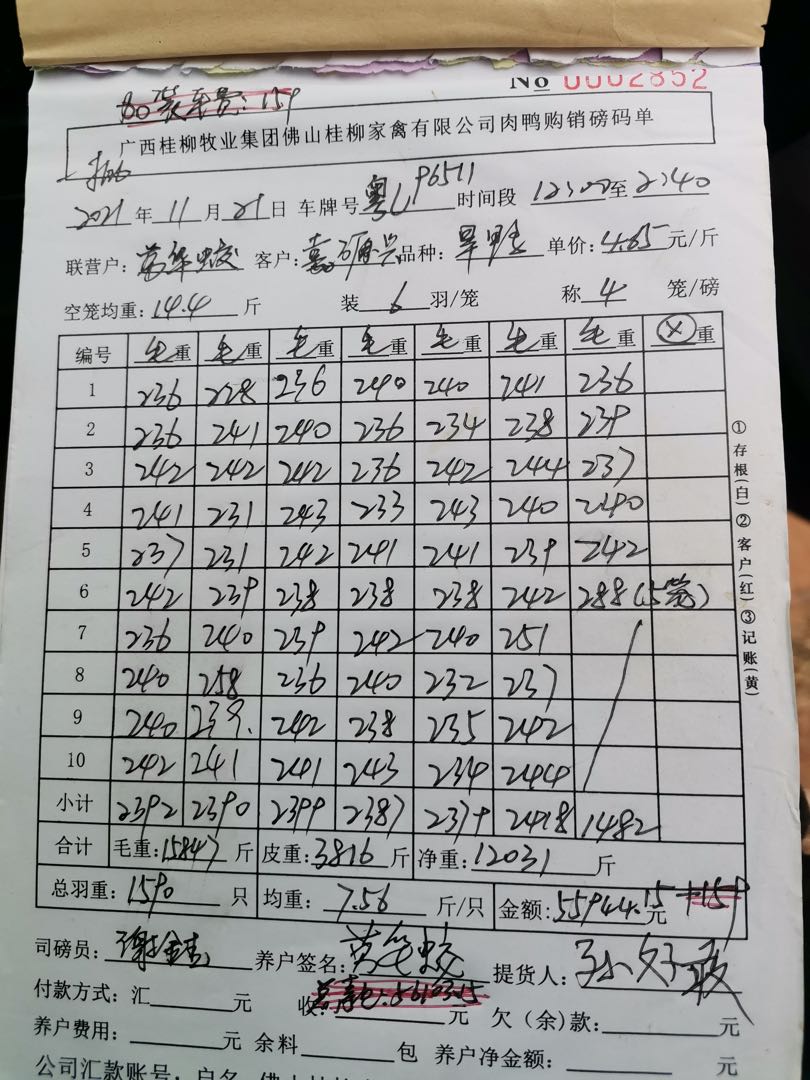 No 0002852
加装车费:159
广西桂柳牧业集团佛山桂柳家禽有限公司肉鸭购销磅码单
2021年11月21日 车牌号粤L P6511 时间段 12:00至2:40
联营户: 客户: 品种: 单价:4.65元/斤
空笼均重:14.4斤 装6羽/笼 称4笼/磅
编号 毛重 毛重 毛重 毛重 毛重 毛重 毛重 重
1 236 228 236 240 240 241 236
2 236 241 240 236 234 238 239
3 242 242 242 236 242 244 237
4 241 231 243 233 243 240 240
5 237 231 242 241 241 239 242
6 242 239 238 238 238 242 288(5笼)
7 236 240 239 242 240 251
8 240 258 236 240 232 237
9 240 239 242 238 235 242
10 242 241 241 243 234 244
小计 2392 2390 2399 2387 2379 2418 1482
合计 毛重:15847斤 皮重:3816斤 净重:12031斤
总羽重:1590只 均重:7.56斤/只 金额:55944.15元 +159
司磅员: 养户签名: 提货人:
付款方式:汇 元 收: 元 欠(余)款: 元
养户费用: 元 余料 包 养户净金额: 元
公司汇款账号:户名
①存根(白)②客户(红)③记账(黄)